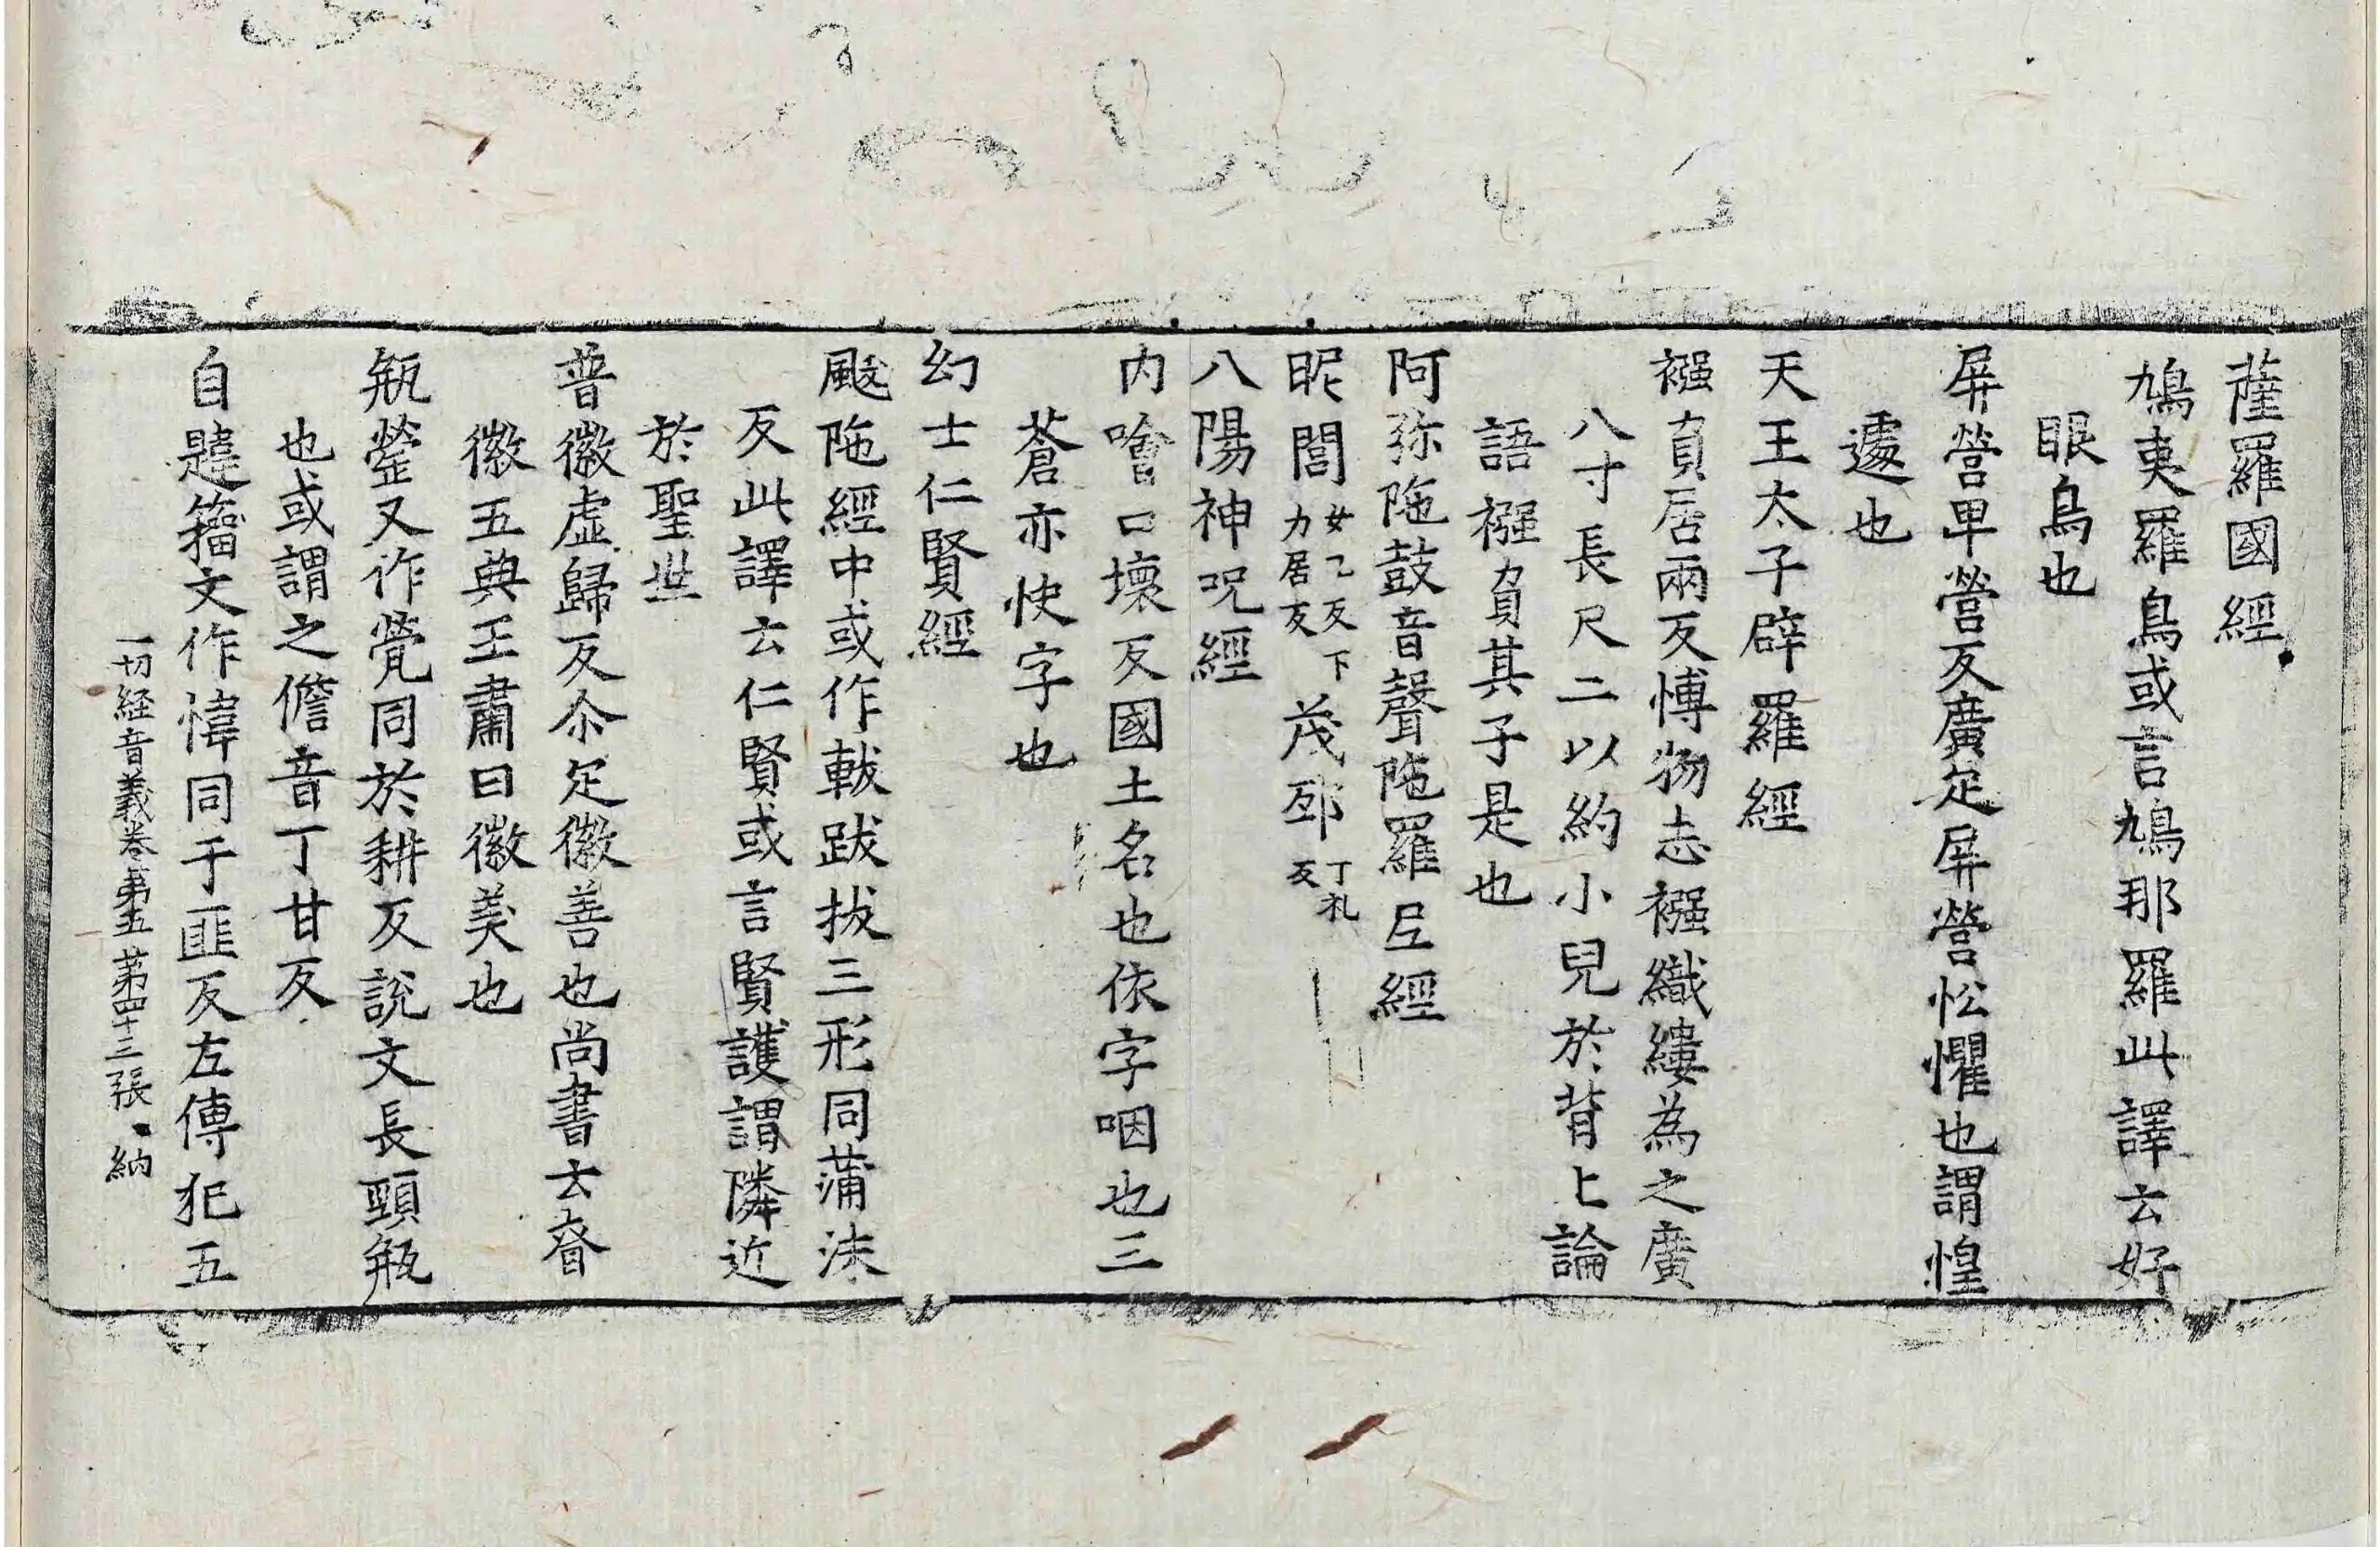 薩羅國經
鳩夷羅鳥或言鳩那羅此譯云好
眼鳥也
屏營畢營反廣定屏營忪懼也謂惶
遽也
天王太子辟羅經
襁負居兩反愽物志襁織縷為之廣
八寸長尺二以約小兒於背上論
語襁負其子是也
阿弥陁鼓音聲陁羅尼經
昵誾女乙反下力居反茂邳丁礼反
八陽神呪經
内噲口壞反國土名也依字咽也三
蒼亦快字也
幻士仁賢經
颰陁經中或作軷跋拔三形同蒲沫
反此譯云仁賢或言賢護謂隣近
於聖也
普徽虚歸反尒疋徽善也尚書云眘
徽五典王肅曰徽美也
瓶罃又作甇同於耕反說文長頸瓶
也或謂之儋音丁甘反
自韙籀文作愇同于匪反左傳犯五
一切経音義卷第五 第四十三張 納